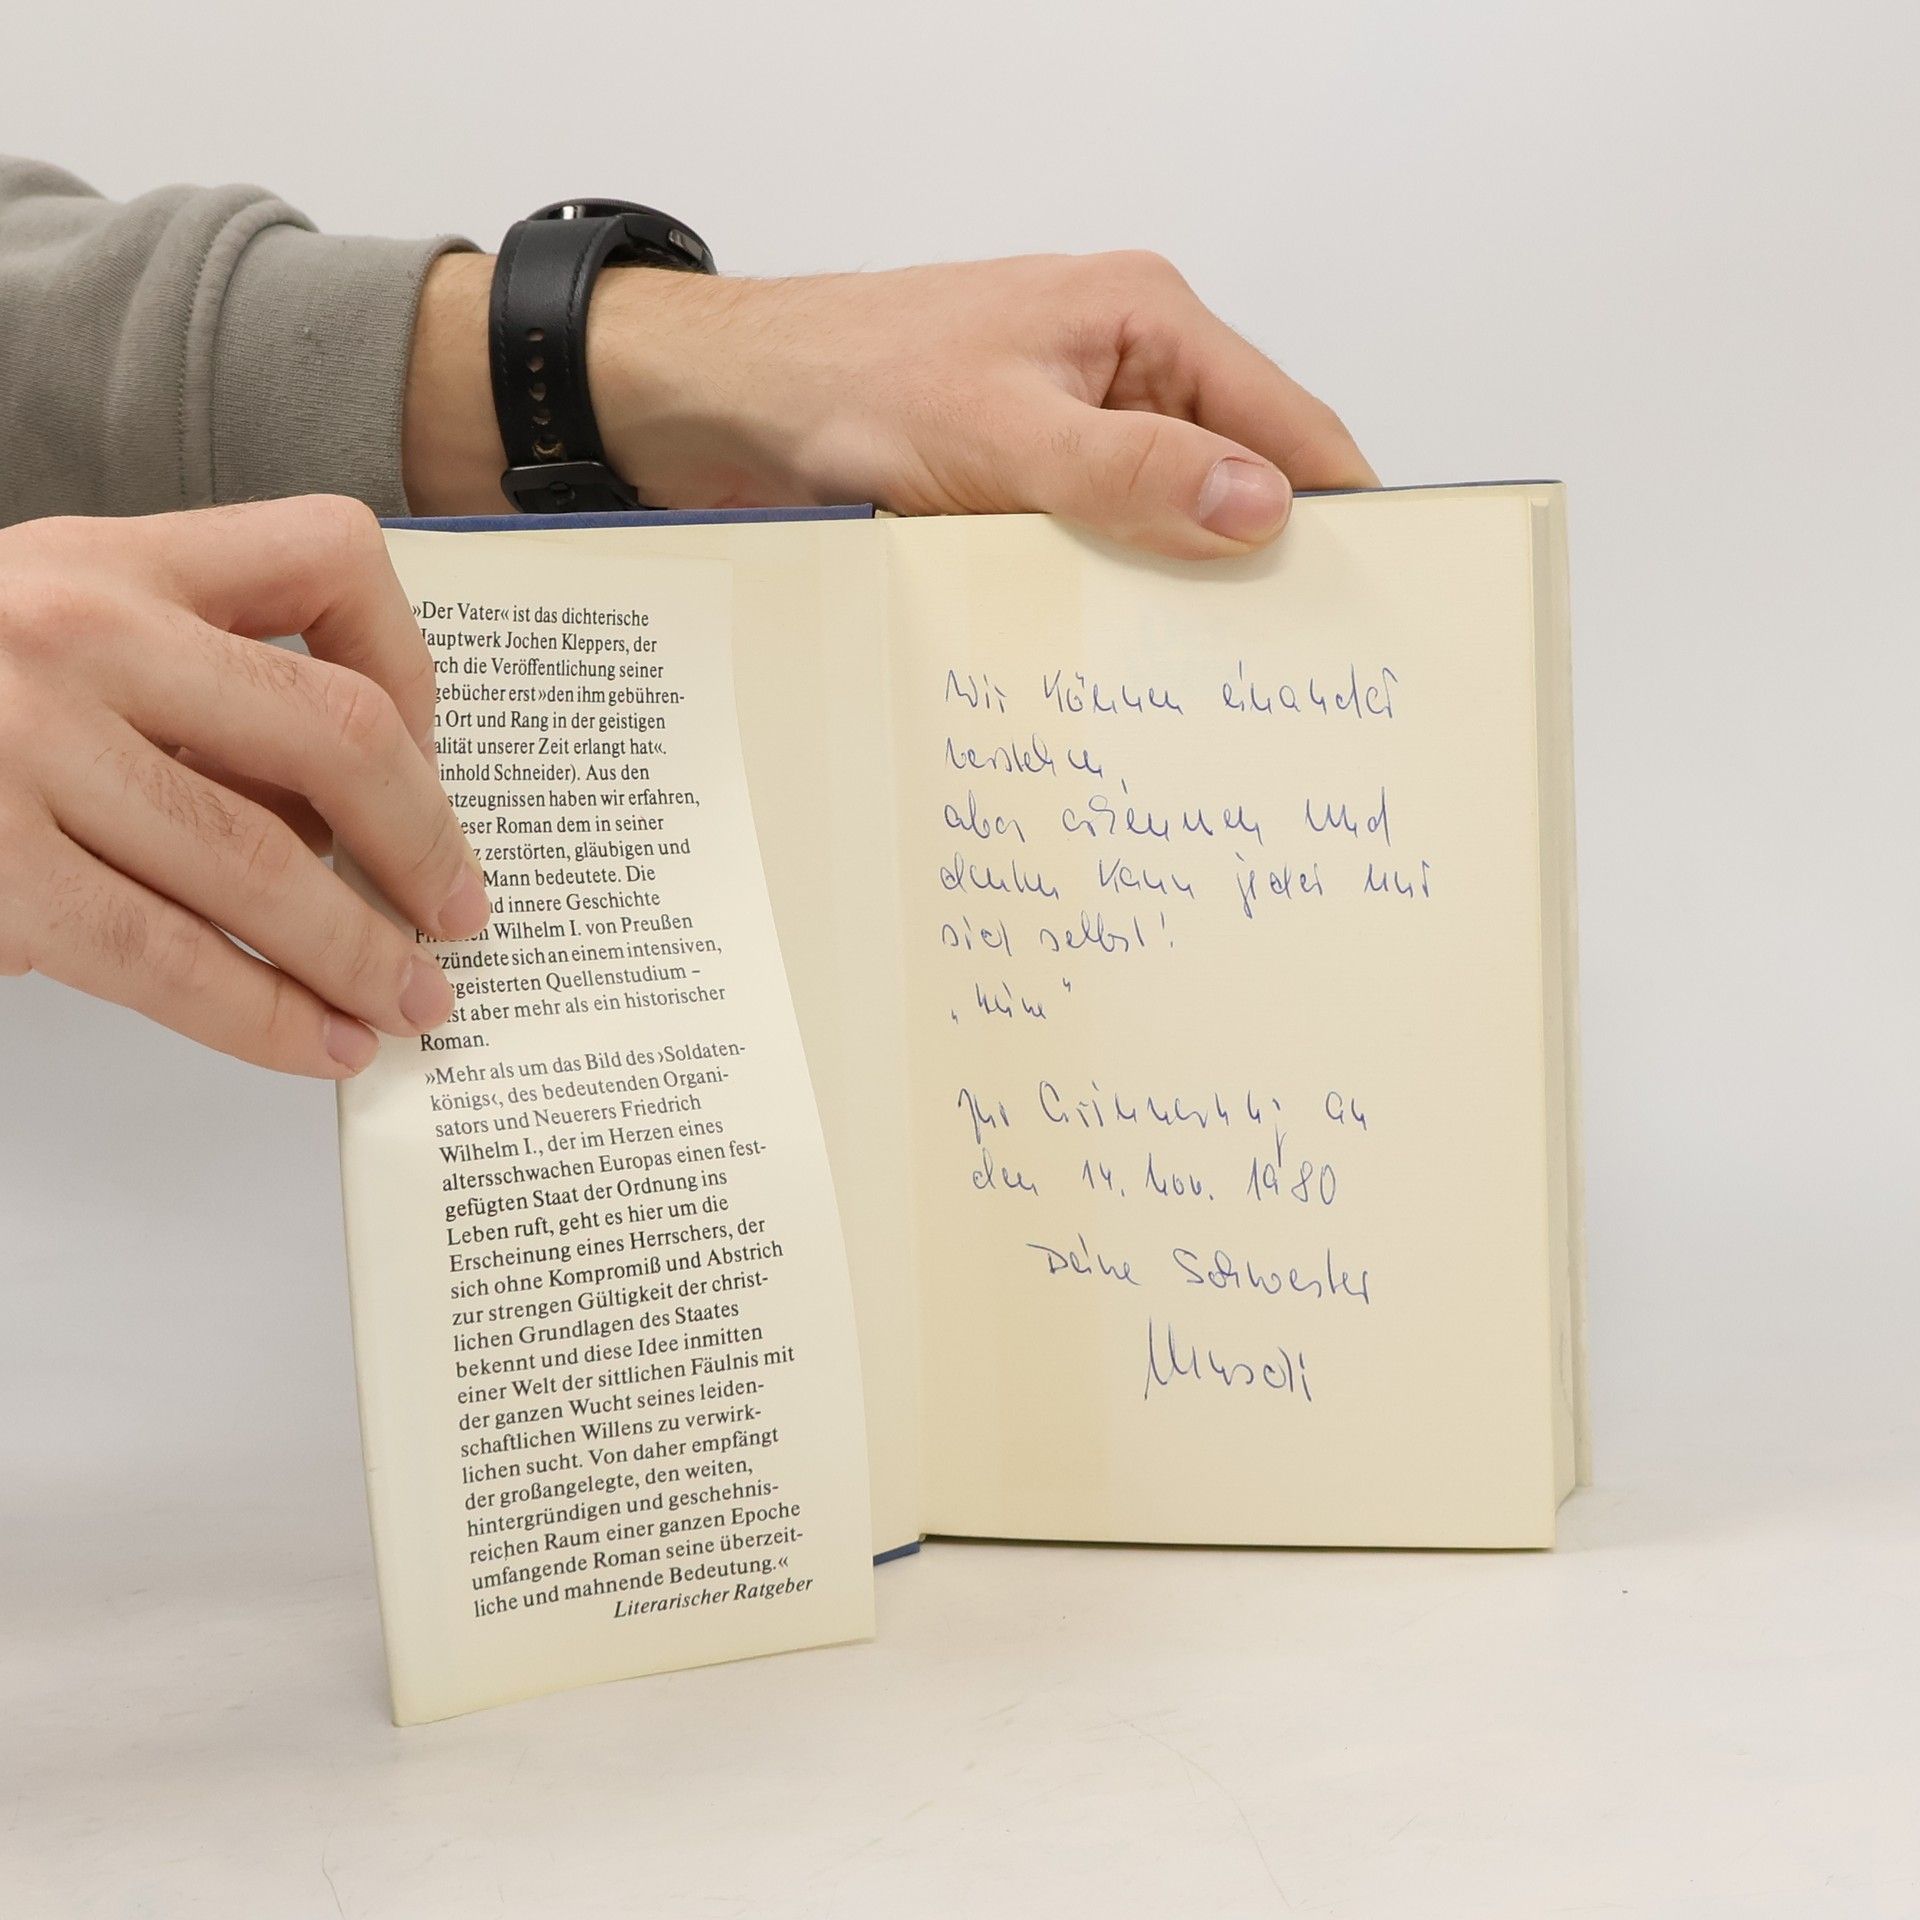 »Der Vater« ist das dichterische
Hauptwerk Jochen Kleppers, der
rch die Veröffentlichung seiner
gebücher erst »den ihm gebühren-
n Ort und Rang in der geistigen
alität unserer Zeit erlangt hat«.
inhold Schneider). Aus den
stzeugnissen haben wir erfahren,
eser Roman dem in seiner
z zerstörten, gläubigen und
Mann bedeutete. Die
nd innere Geschichte
Friedrich Wilhelm I. von Preußen
tzündete sich an einem intensiven,
egeisterten Quellenstudium –
ist aber mehr als ein historischer
Roman.
»Mehr als um das Bild des ›Soldaten-
königs‹, des bedeutenden Organi-
sators und Neuerers Friedrich
Wilhelm I., der im Herzen eines
altersschwachen Europas einen fest-
gefügten Staat der Ordnung ins
Leben ruft, geht es hier um die
Erscheinung eines Herrschers, der
sich ohne Kompromiß und Abstrich
zur strengen Gültigkeit der christ-
lichen Grundlagen des Staates
bekennt und diese Idee inmitten
einer Welt der sittlichen Fäulnis mit
der ganzen Wucht seines leiden-
schaftlichen Willens zu verwirk-
lichen sucht. Von daher empfängt
der großangelegte, den weiten,
hintergründigen und geschehnis-
reichen Raum einer ganzen Epoche
umfangende Roman seine überzeit-
liche und mahnende Bedeutung.«
Literarischer Ratgeber
Wir können einander
verstehen,
aber erkennen und
deuten kann jeder nur
sich selbst!
Zur Erinnerung an
den 14. Nov. 1980
Deine Schwester
Muschi